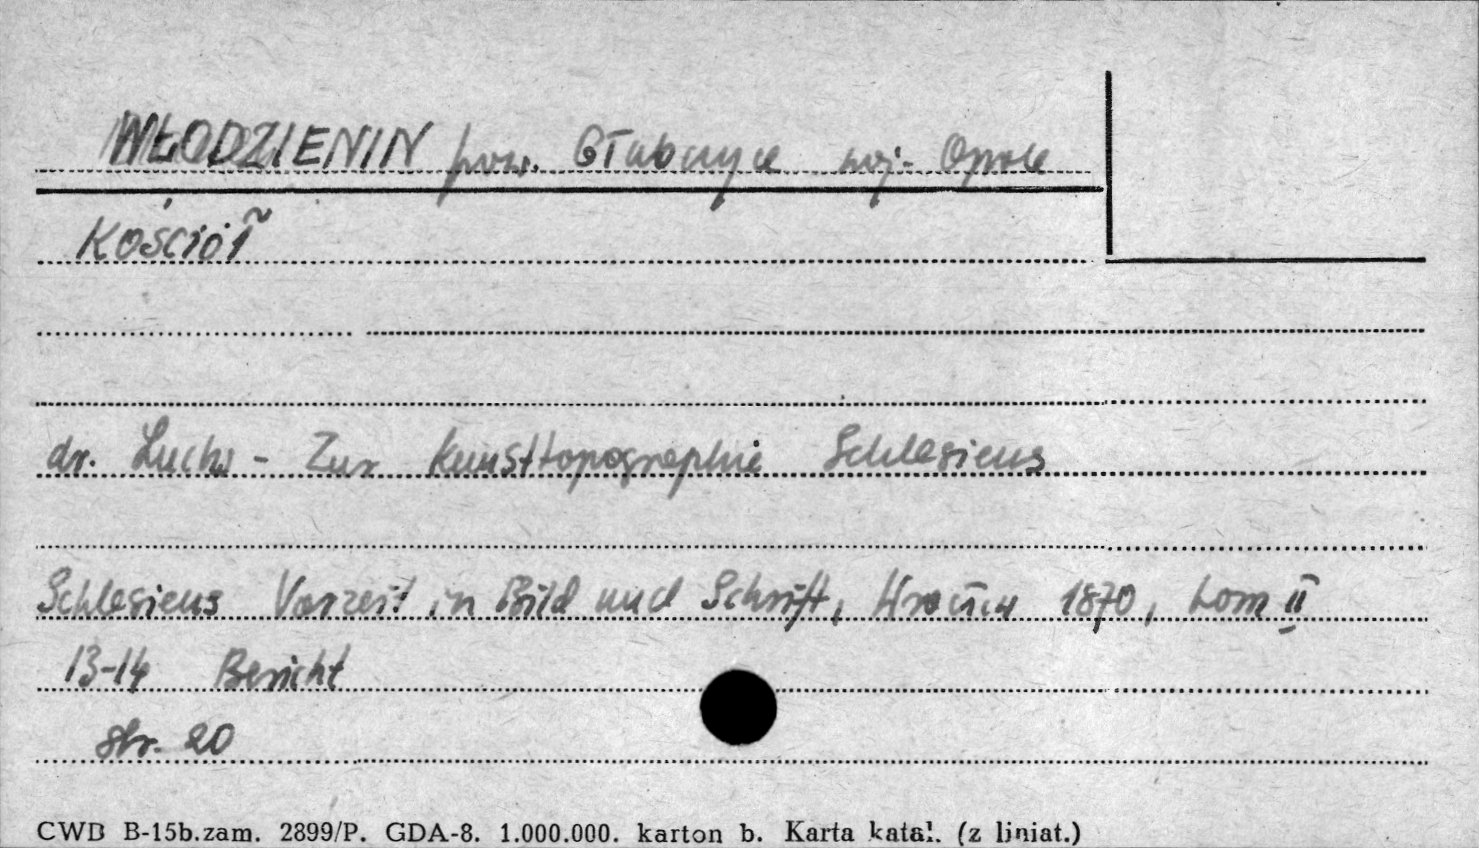 WŁODZIENIN pow. Głubczyce woj. Opole
Kościół
dr. Luchs - Zur Kunsttopographie Schlesiens
Schlesiens Vorzeit in Bild und Schrift, Wrocław 1870, tom II
13-14 Bericht
str. 20
CWD B-15b.zam. 2899/P. GDA-8. 1.000.000. karton b. Karta katal. (z liniat.)